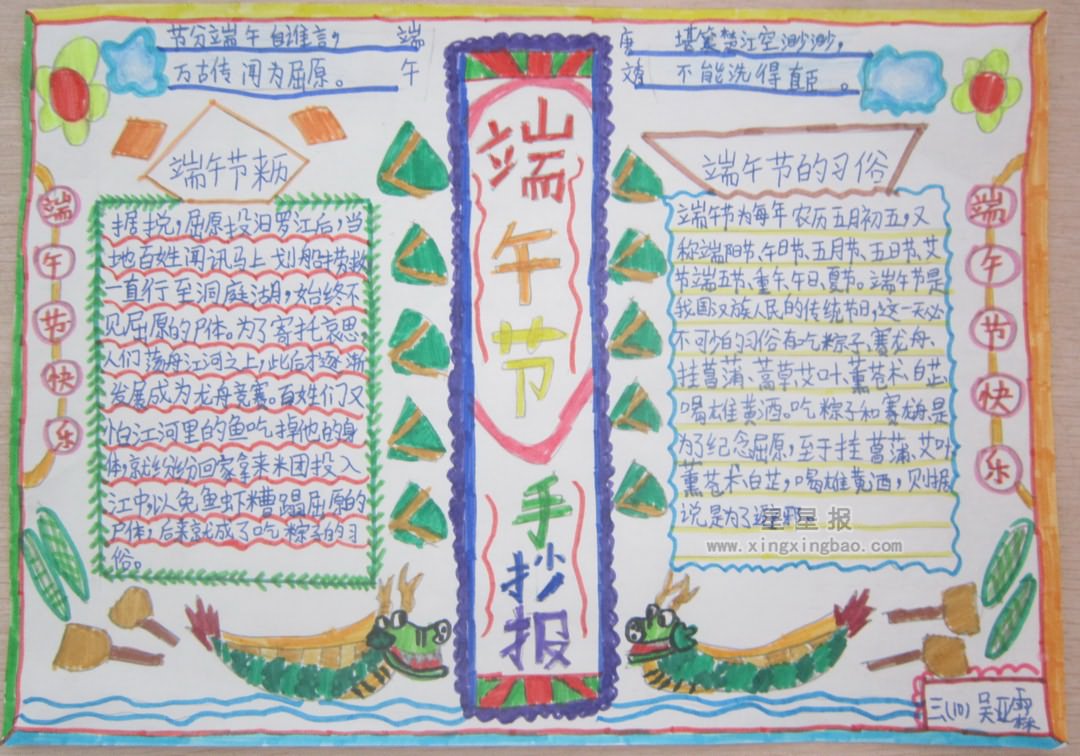 节分端午自谁言，
万古传闻为屈原。
端
午
唐
文秀
堪笑楚江空渺渺，
不能洗得直臣。
端午节快乐
端午节来历
据说，屈原投汨罗江后，当
地百姓闻讯马上划船捞救
一直行至洞庭湖，始终不
见屈原的尸体。为了寄托哀思
人们荡舟江河之上，此后才逐渐
发展成为龙舟竞赛。百姓们又
怕江河里的鱼吃掉他的身
体，就纷纷回家拿来米团投入
江中，以免鱼虾糟蹋屈原的
尸体，后来就成了吃粽子的习
俗。
端午节
手抄报
端午节的习俗
端午节为每年农历五月初五，又
称端阳节、午日节、五月节、五日节、艾
节端五节、重午、午日、夏节。端午节是
我国汉族人民的传统节日，这一天必
不可少的习俗有吃粽子、赛龙舟、
挂菖蒲、蒿草艾叶、薰苍术、白芷
喝雄黄酒。吃粽子和赛龙舟是
为了纪念屈原，至于挂菖蒲、艾叶
薰苍术、白芷，喝雄黄酒，则据
说是为了避邪。
端午节快乐
星星报
www.xingxingbao.com
三(10) 吴亚霖